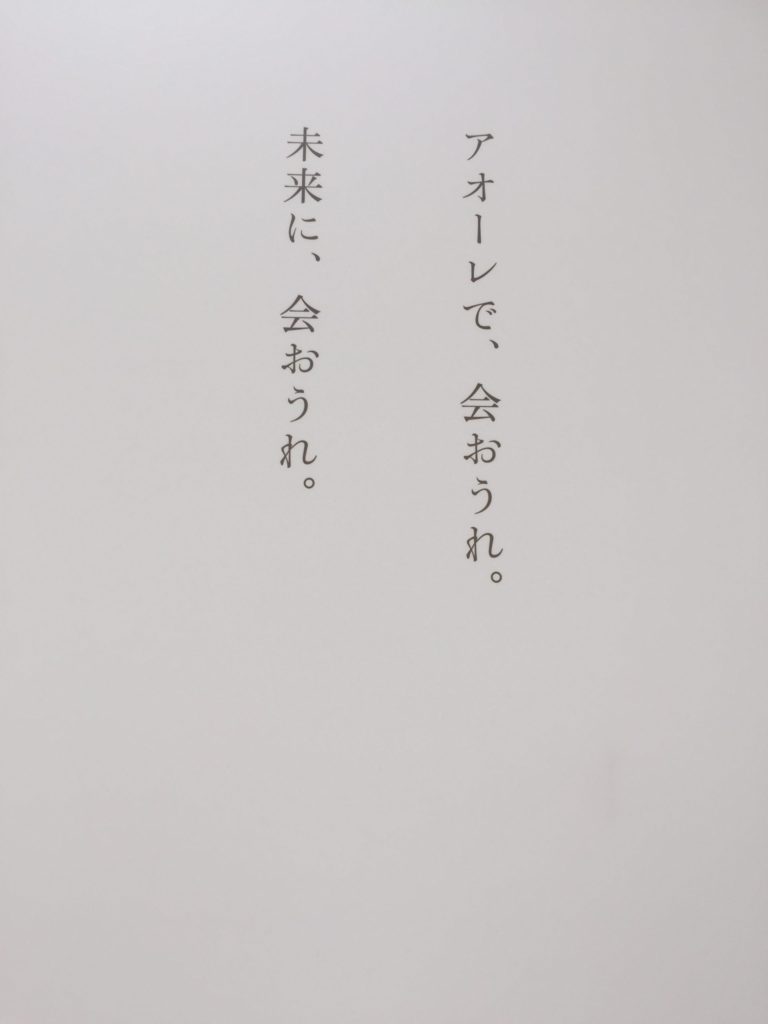 アオーレで、会おうれ。
未来に、会おうれ。